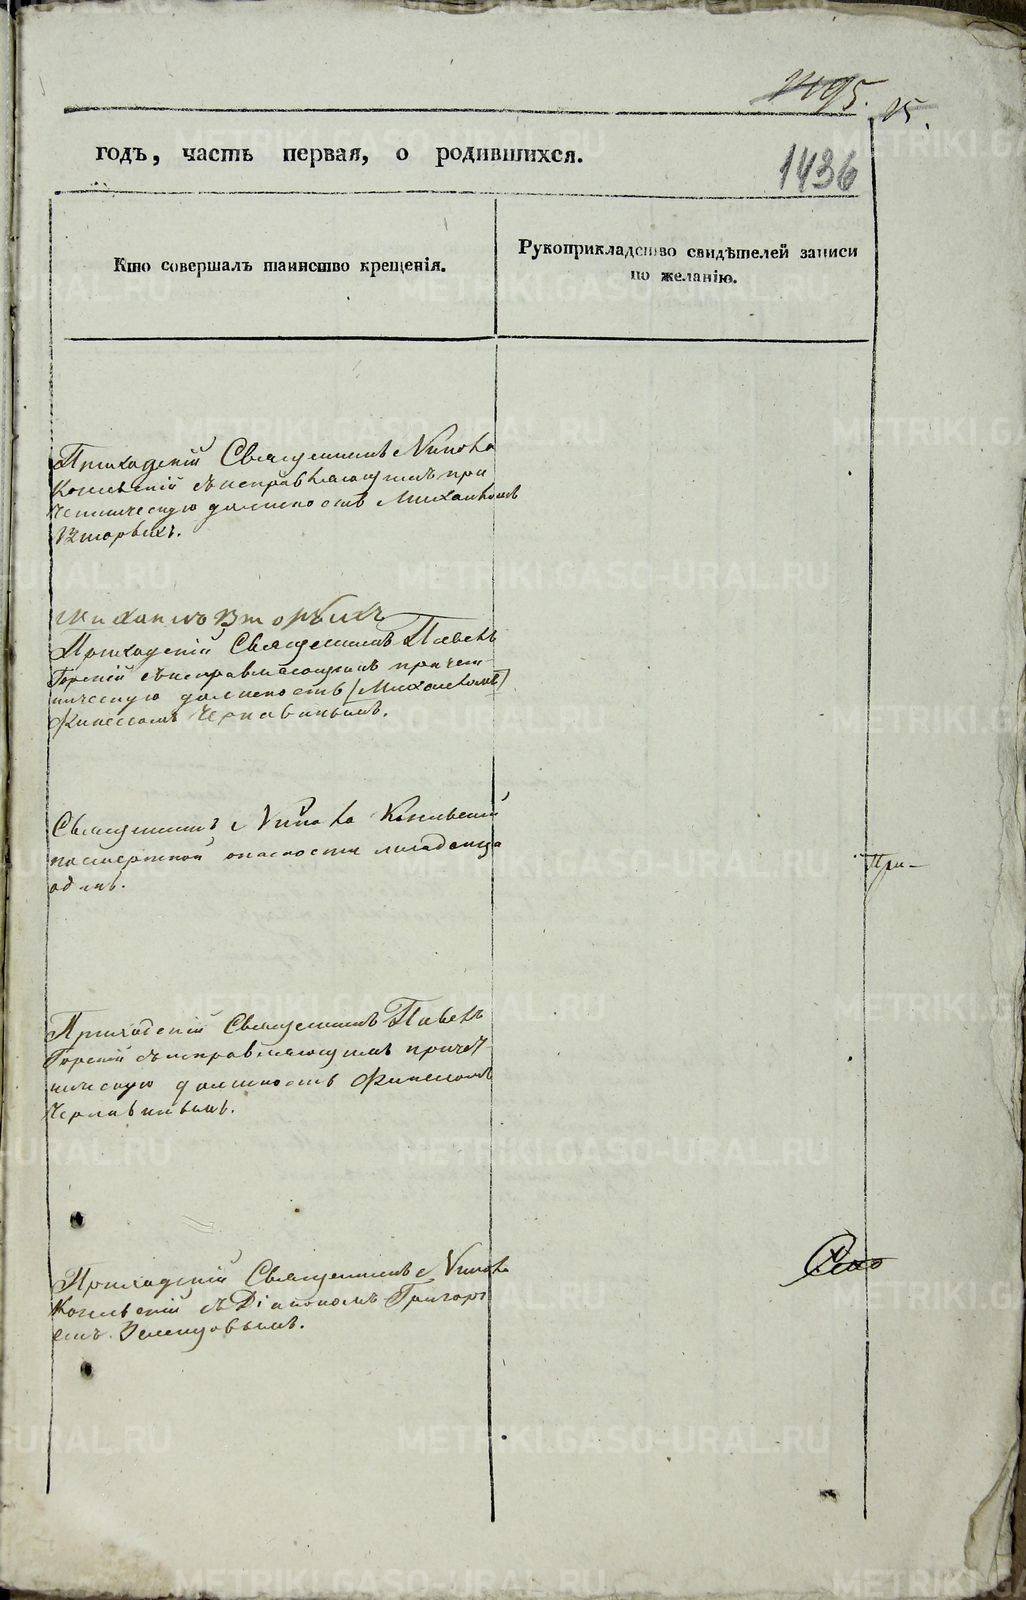 1195.
15.
годъ, часть первая, о родившихся.
1436
Кто совершалъ таинство крещенія.
Рукоприкладство свидѣтелей записи
по желанію.
Приходскій Священникъ Никола
съ исправляющимъ при
четническую должность Михаиломъ
Вторыхъ.
Михаилъ Вторыхъ
Приходскій Священникъ Павелъ
Горскій съ исправляющимъ причет
ническую должность (Михаиломъ)
Финесомъ Чернавинымъ.
Священникъ Никола
по смертной опасности младенца
одинъ.
При-
Приходскій Священникъ Павелъ
Горскій съ исправляющимъ причет
ническую должность Финесомъ
Чернавинымъ.
Приходскій Священникъ Никола
съ Діакономъ Григорі
емъ Зеленцовымъ.
METRIKI.GASO-URAL.RU